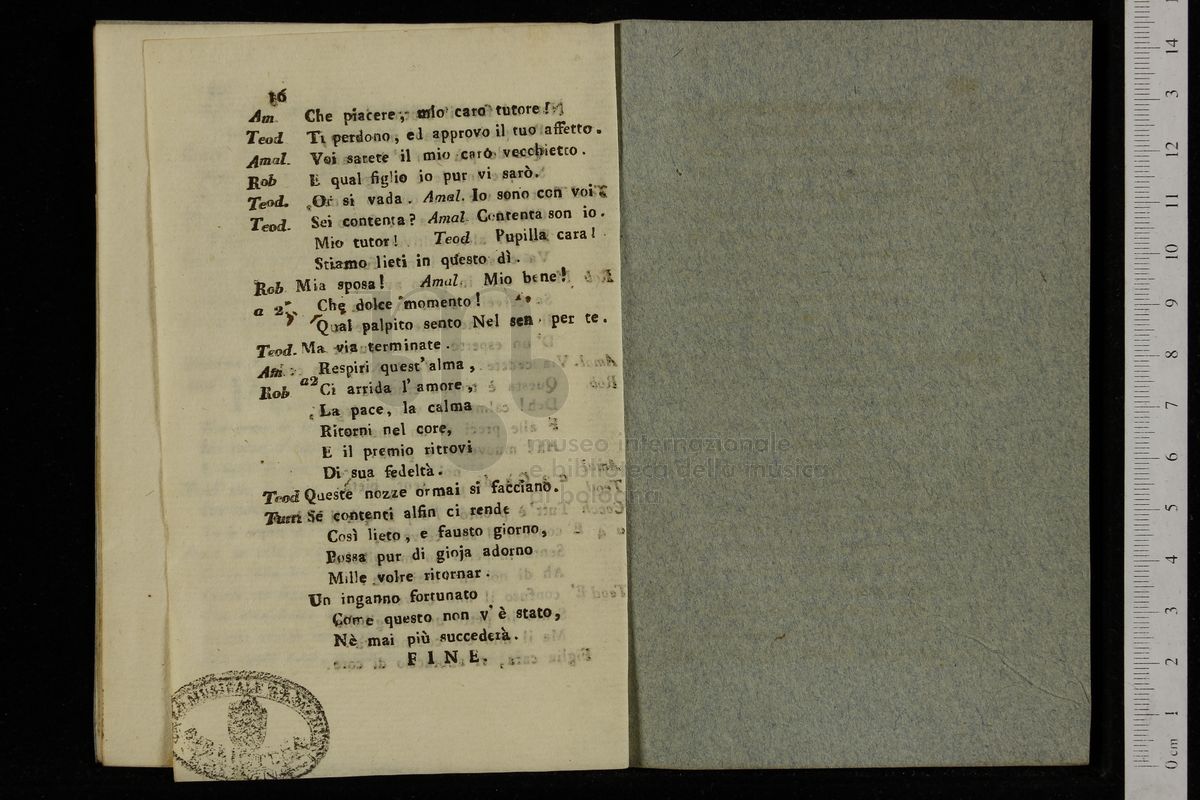 16
Am. Che piacere, mio caro tutore!
Teod Ti perdono, ed approvo il tuo affetto.
Amal. Voi sarete il mio caro vecchietto.
Rob E qual figlio io pur vi sarò.
Teod. Or si vada. Amal. Io sono con voi
Teod. Sei contenta? Amal. Contenta son io.
Mio tutor! Teod Pupilla cara!
Stiamo lieti in questo dì.
Rob Mia sposa! Amal. Mio bene!
a 2 Che dolce momento!
Qual palpito sento Nel sen per te.
Teod. Ma via terminate.
Am. Respiri quest'alma,
Rob a2 Ci arrida l'amore,
La pace, la calma
Ritorni nel core,
E il premio ritrovi
Di sua fedeltà.
Teod Queste nozze ormai si facciano.
Tutti Se contenti alfin ci rende
Così lieto, e fausto giorno,
Possa pur di gioja adorno
Mille volre ritornar.
Un inganno fortunato
Come questo non v'è stato,
Nè mai più succederà.
FINE.
museo internazionale
e biblioteca della musica
di bologna
MUSICALE
0 cm 1 2 3 4 5 6 7 8 9 10 11 12 3 14